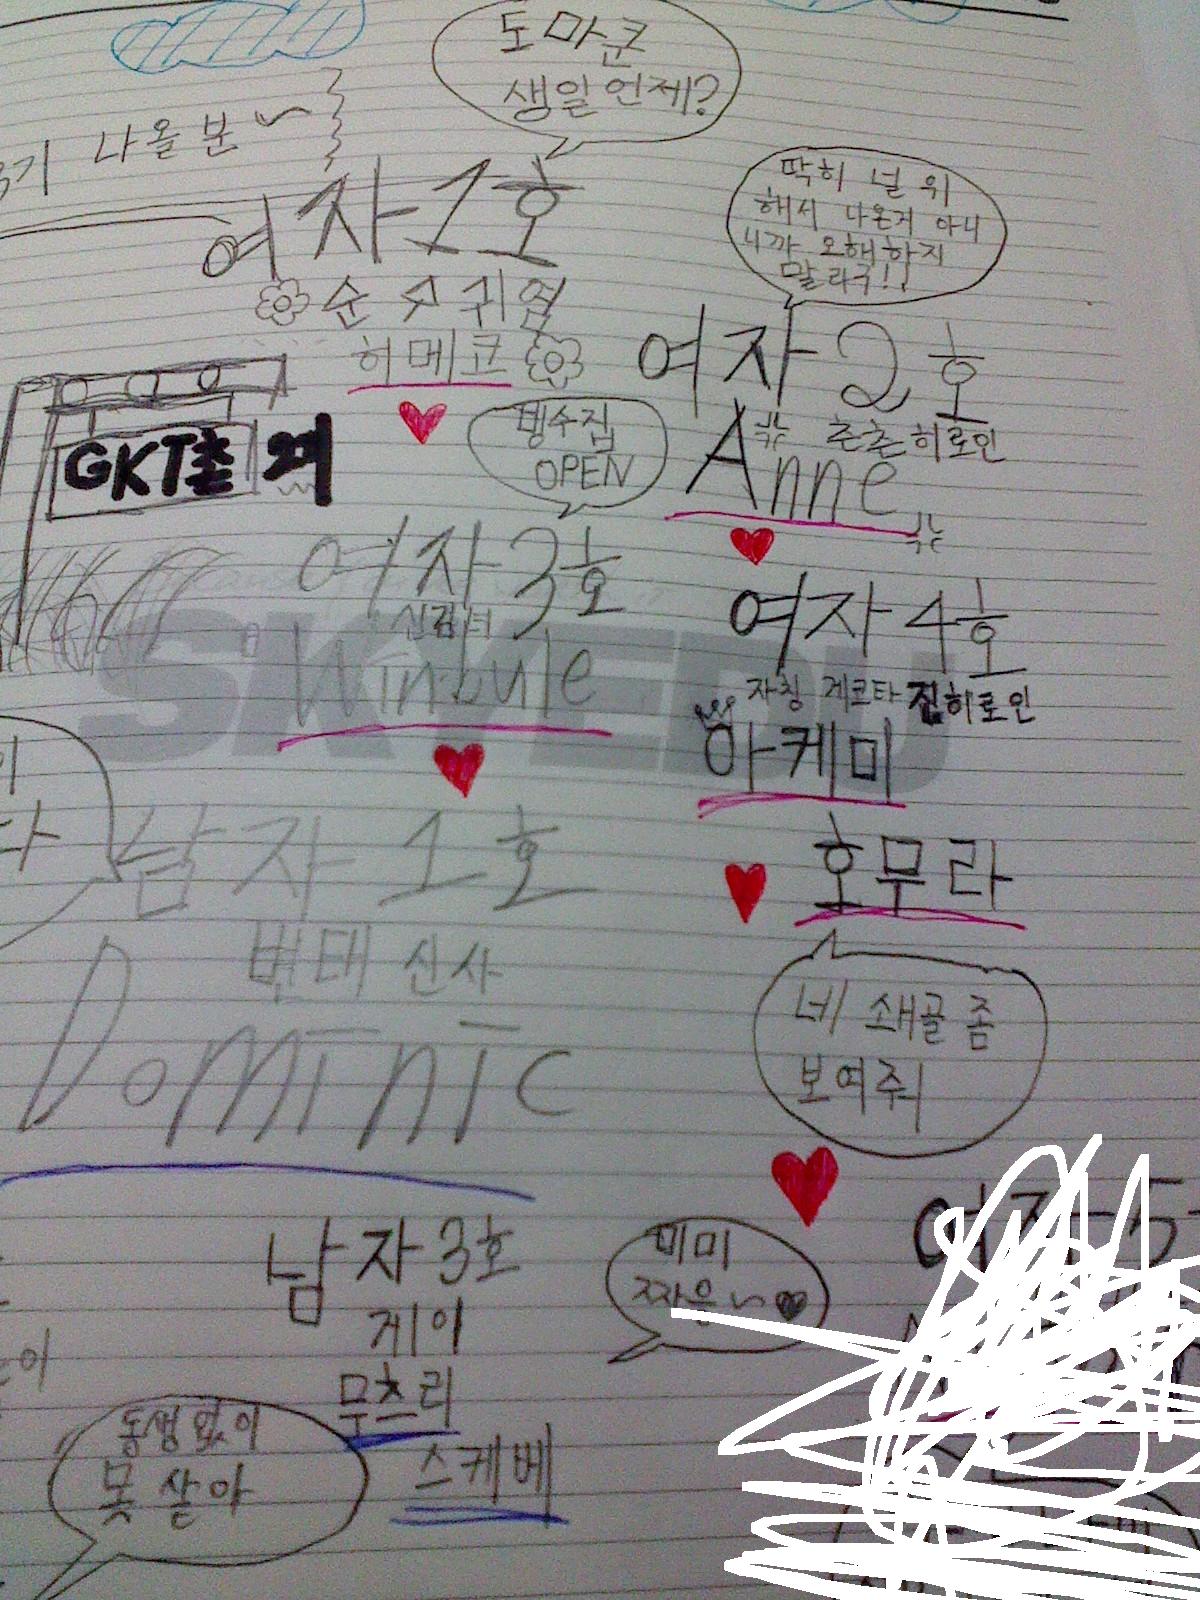 도마군
생일언제?
나올분~
여자1호
순수귀엽
히메코
딱히 널 위
해서 나온게 아니
니까 오해하지
말라구!!
여자2호
츤츤히로인
Anne
GKT촌
빙수집
OPEN
여자3호
신검녀
Winbule
여자4호
자칭 게코타 진히로인
아케미
호무라
네 쇄골 좀
보여줘
남자1호
변태신사
Dominic
남자3호
게이
무츠리
스케베
동생없이
못 살아
미미
짜응~♥
여자5
SKYEDU